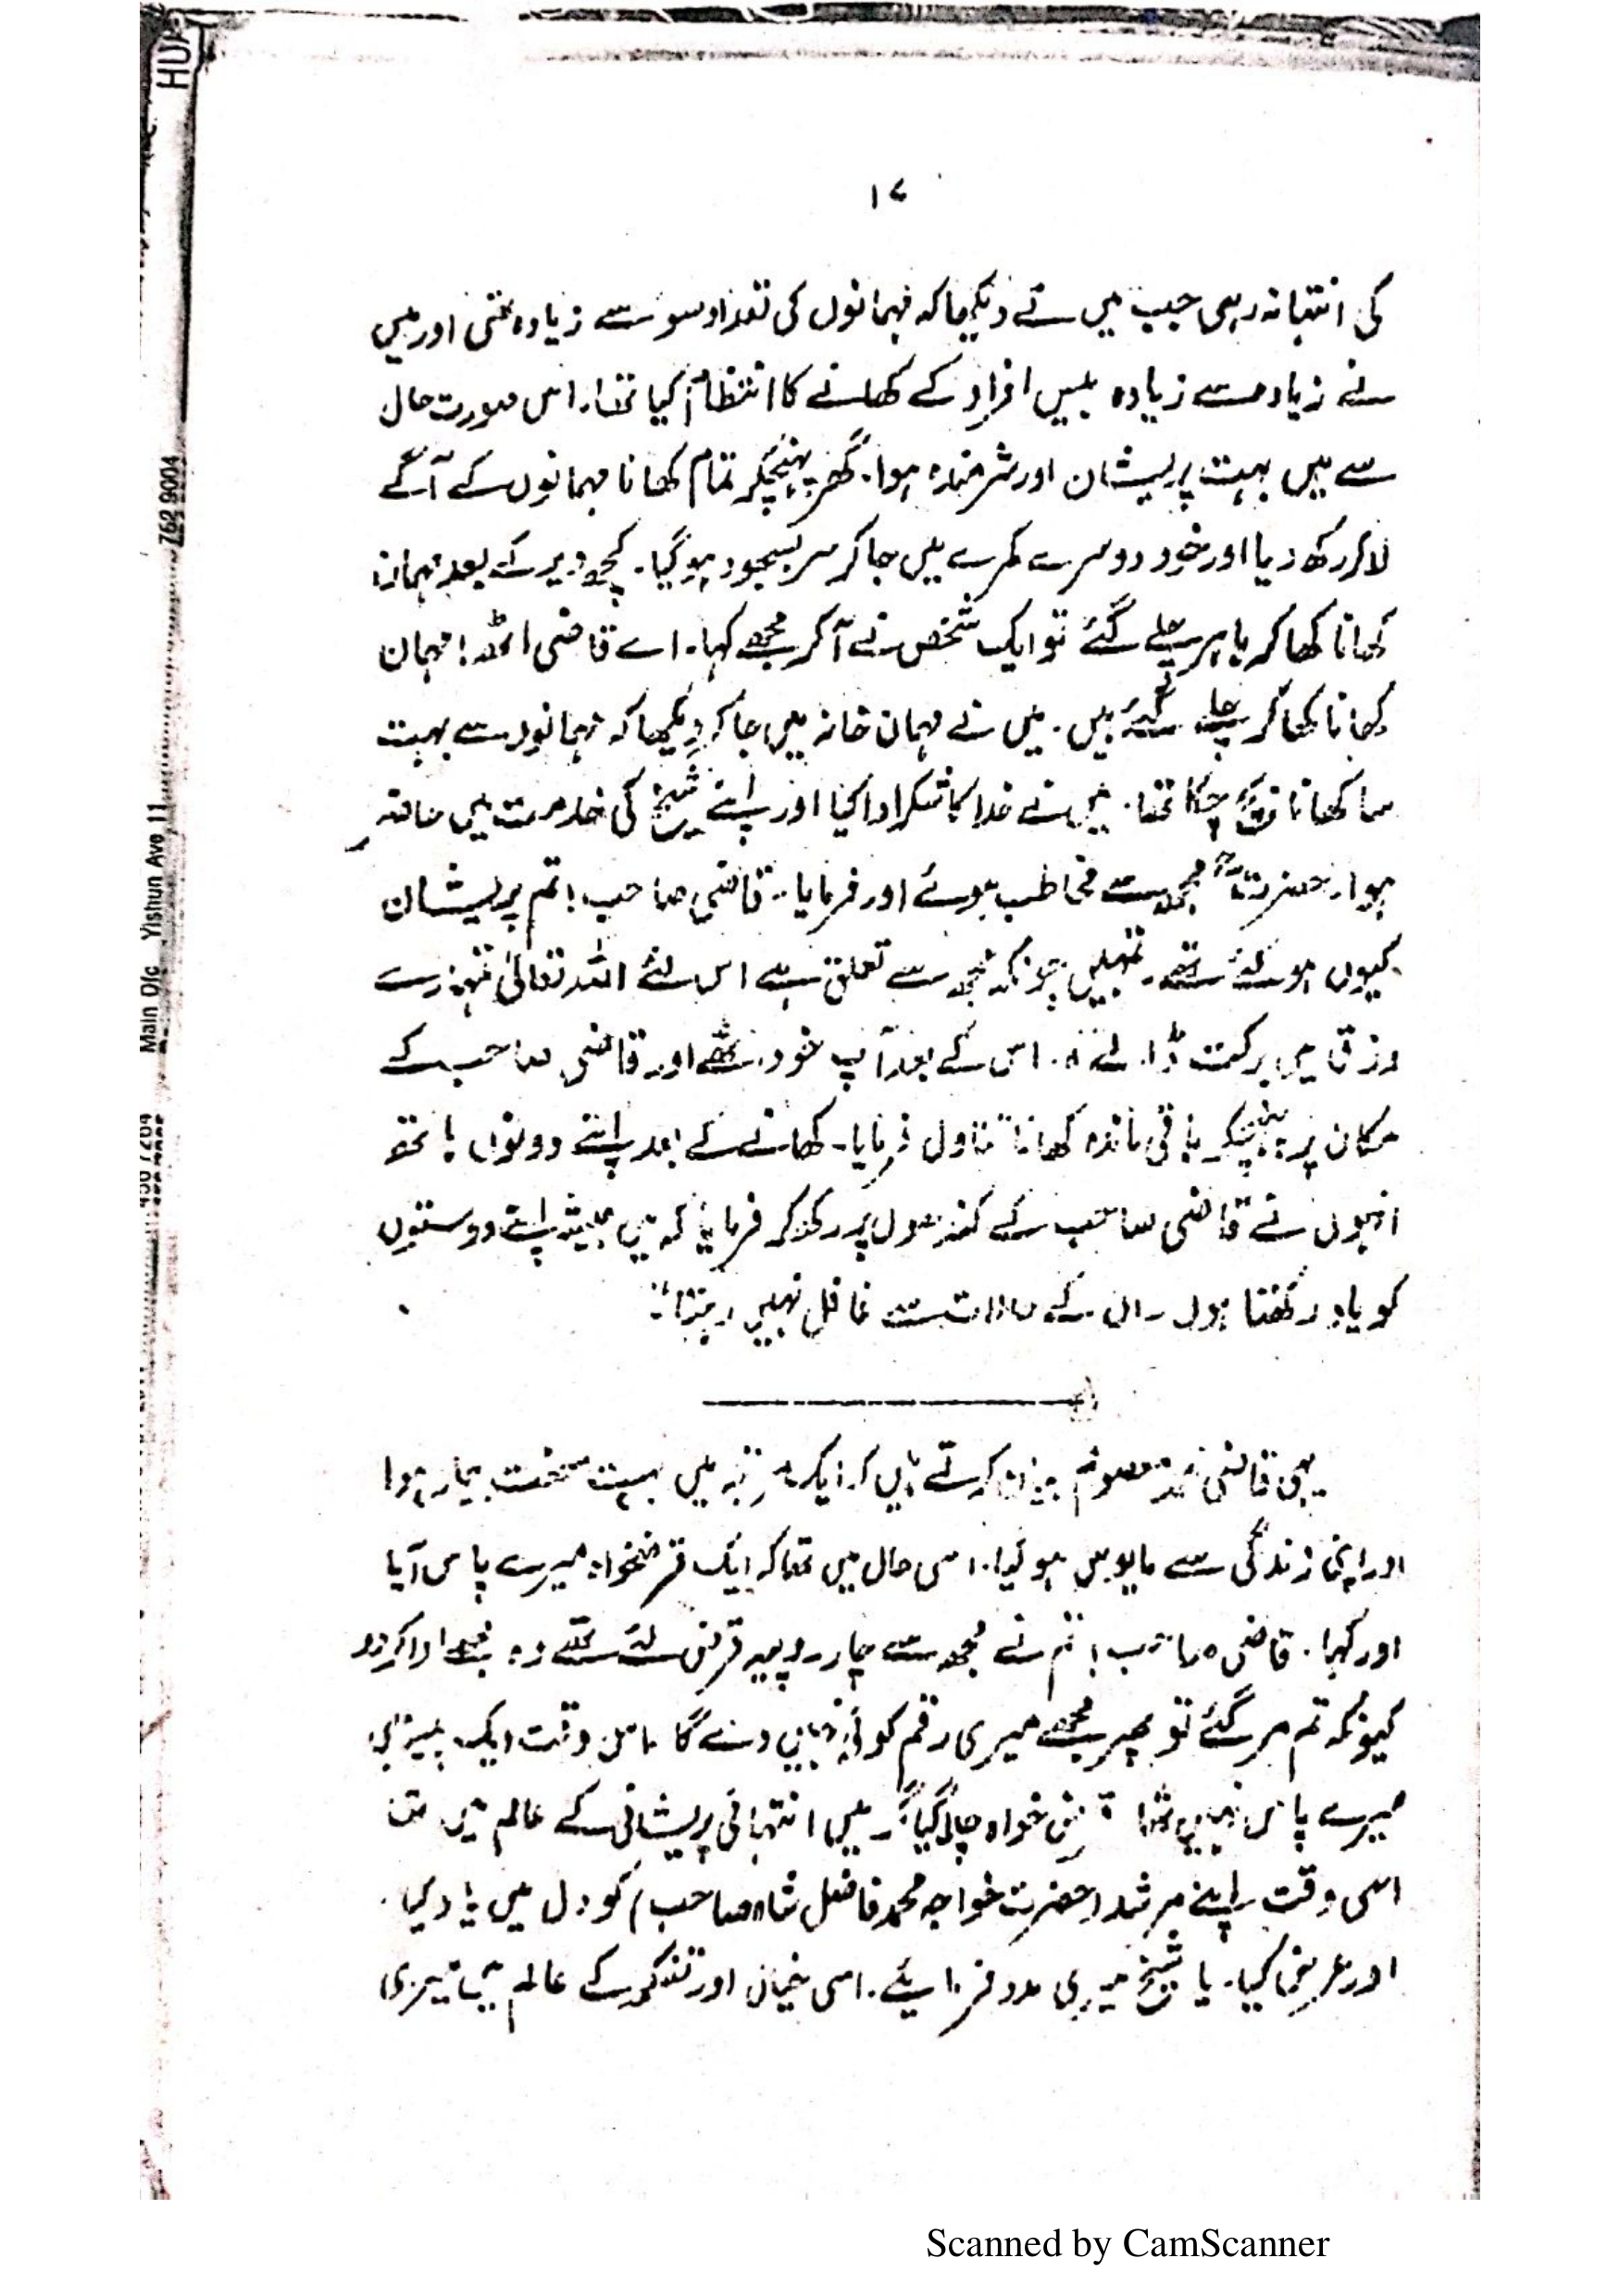 ۱۷
کی انتہا نہ رہی جب میں نے دیکھا کہ مہمانوں کی تعداد سو سے زیادہ تھی اور میں
نے زیادہ سے زیادہ بیس افراد کے کھانے کا انتظام کیا تھا۔ اس صورت حال
سے میں بہت پریشان اور شرمندہ ہوا۔ گھر پہنچکر تمام کھانا مہمانوں کے آگے
لا کر رکھ دیا اور خود دوسرے کمرے میں جا کر سر بسجود ہو گیا۔ کچھ دیر کے بعد مہمان
کھانا کھا کر باہر چلے گئے تو ایک شخص نے آ کر مجھے کہا۔ اے قاضی اٹھ! مہمان
کھانا کھا کر چلے گئے ہیں۔ میں نے مہمان خانہ میں جا کر دیکھا کہ مہمانوں سے بہت
سا کھانا بچ چکا تھا۔ میں نے خدا کا شکر ادا کیا اور اپنے شیخ کی خدمت میں حاضر
ہوا۔ حضرت مجھ سے مخاطب ہوئے اور فرمایا۔ قاضی صاحب! تم پریشان
کیوں ہو گئے تھے۔ تمہیں چونکہ مجھ سے تعلق ہے اس لئے اللہ تعالیٰ تمہارے
رزق میں برکت ڈالے گا۔ اس کے بعد آپ خود اٹھے اور قاضی صاحب کے
مکان پر پہنچکر باقی ماندہ کھانا تناول فرمایا۔ کھانے کے بعد اپنے دونوں ہاتھ
انہوں نے قاضی صاحب کے کندھوں پر رکھ کر فرمایا کہ میں ہمیشہ اپنے دوستوں
کو یاد رکھتا ہوں۔ ان کے حالات سے غافل نہیں رہتا۔"
یہی قاضی محمد معصوم بیان کرتے ہیں کہ ایک مرتبہ میں بہت سخت بیمار ہوا
اور اپنی زندگی سے مایوس ہو گیا۔ اسی حال میں تھا کہ ایک قرضخواہ میرے پاس آیا
اور کہا۔ قاضی صاحب! تم نے مجھ سے چار روپیہ قرض لئے تھے وہ مجھے ادا کر دو
کیونکہ تم مر گئے تو پھر مجھے میری رقم کوئی نہیں دے گا۔ اس وقت ایک پیسہ بھی
میرے پاس نہیں تھا۔ قرض خواہ چلا گیا۔ میں انتہائی پریشانی کے عالم میں تھا
اسی وقت اپنے مرشد (حضرت خواجہ محمد فاضل شاہ صاحب) کو دل میں یاد کیا۔
اور عرض کیا۔ یا شیخ میری مدد فرمایئے۔ اسی خیال اور تفکر کے عالم میں میری
HUA
762 9004
Main Ofc Yishun Ave 11
Scanned by CamScanner